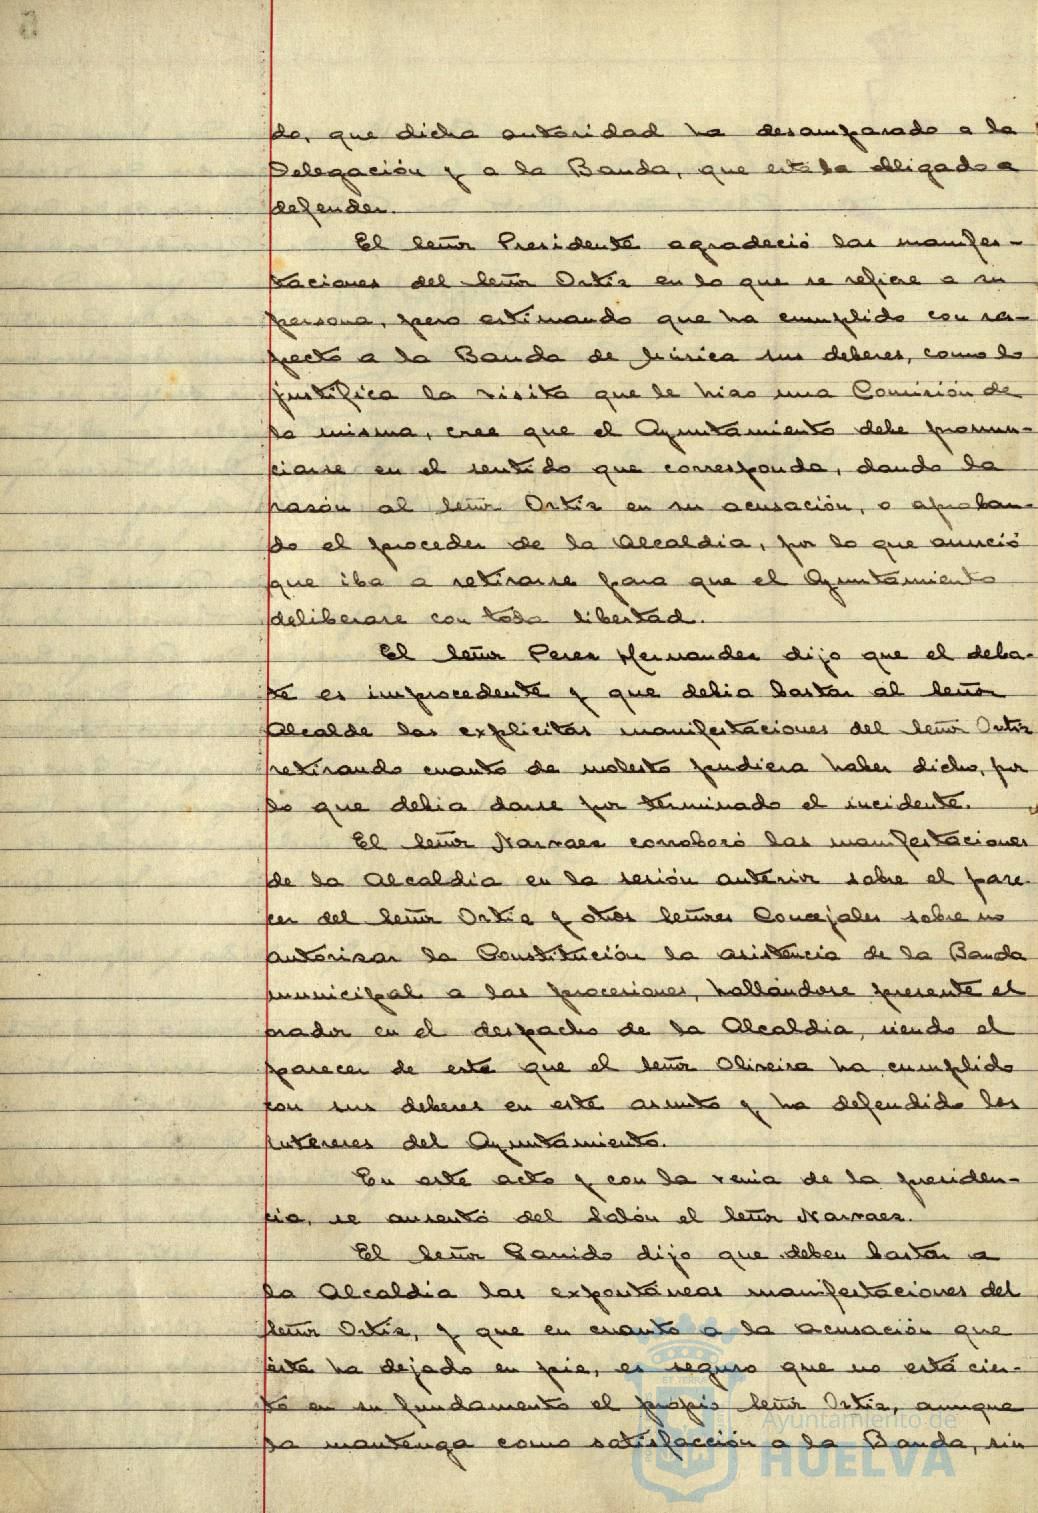 do, que dicha autoridad ha desamparado a la
Delegación y a la Banda, que estaba obligado a
defender.
El Señor Presidente agradeció las manifes-
taciones del Señor Ortiz en lo que se refiere a su
persona, pero estimando que ha cumplido con res-
pecto a la Banda de Música sus deberes, como lo
justifica la visita que le hizo una Comisión de
la misma, cree que el Ayuntamiento debe pronun-
ciarse en el sentido que corresponda, dando la
razón al Señor Ortiz en su acusación, o aproban-
do el proceder de la Alcaldia, por lo que anunció
que iba a retirarse para que el Ayuntamiento
deliberase con toda libertad.
El Señor Perez Hernandez dijo que el deba-
te es improcedente y que debia bastar al Señor
Alcalde las explicitas manifestaciones del Señor Ortiz
retirando cuanto de molesto pudiera haber dicho, por
lo que debia darse por terminado el incidente.
El Señor Narvaez corroboró las manifestaciones
de la Alcaldia en la sesión anterior sobre el pare-
cer del Señor Ortiz y otros Señores Concejales sobre no
autorizar la Constitución la asistencia de la Banda
municipal a las procesiones, hallándose presente el
orador en el despacho de la Alcaldia, siendo el
parecer de este que el Señor Oliveira ha cumplido
con sus deberes en este asunto y ha defendido los
intereses del Ayuntamiento.
En este acto y con la venia de la presiden-
cia, se ausentó del Salón el Señor Narvaez.
El Señor Garrido dijo que deben bastar a
la Alcaldia las expontáneas manifestaciones del
Señor Ortiz, y que en cuanto a la acusación que
éste ha dejado en pie, es seguro que no está cier-
to en su fundamento el propio Señor Ortiz, aunque
la mantenga como satisfacción a la Banda, sin
Ayuntamiento de
HUELVA